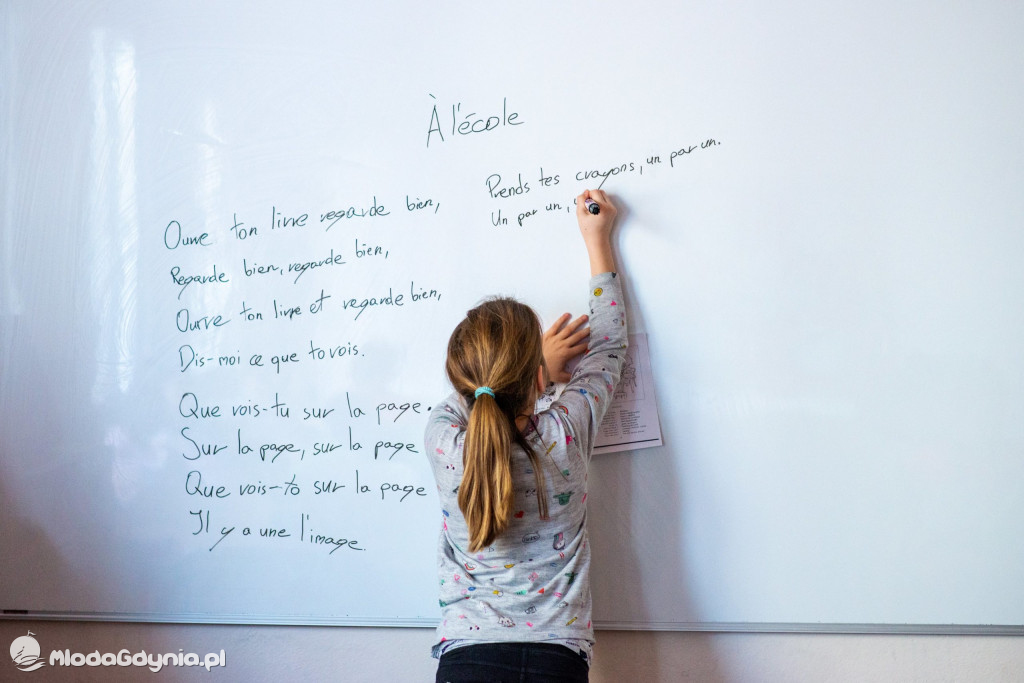 À l'école
Ouvre ton livre regarde bien,
Regarde bien, regarde bien,
Ouvre ton livre et regarde bien,
Dis-moi ce que tovois.
Que vois-tu sur la page.
Sur la page, sur la page
Que vois-to sur la page
Il y a une l'image.
Prends tes crayons, un par un.
Un par un,
MlodaGdynia.pl